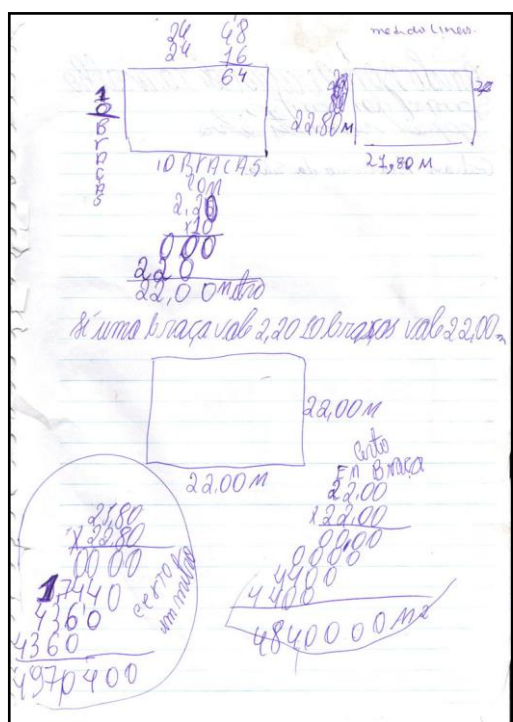 24 48
24 16
64
medida Linear
10 BrAçAS
22,80 M
21,80 M
10 BrACAS
COM
2,20
x10
000
220
22,00 metro
Si uma braça vale 2,20 10 braças vale 22,00m
22,00 M
22,00 M
certo
EM Braça
22,00
x22,00
0000
0000
4400
4400
4840000 M2
21,80
x22,80
0000
17440
4360
4360
4970400
certo
um metro